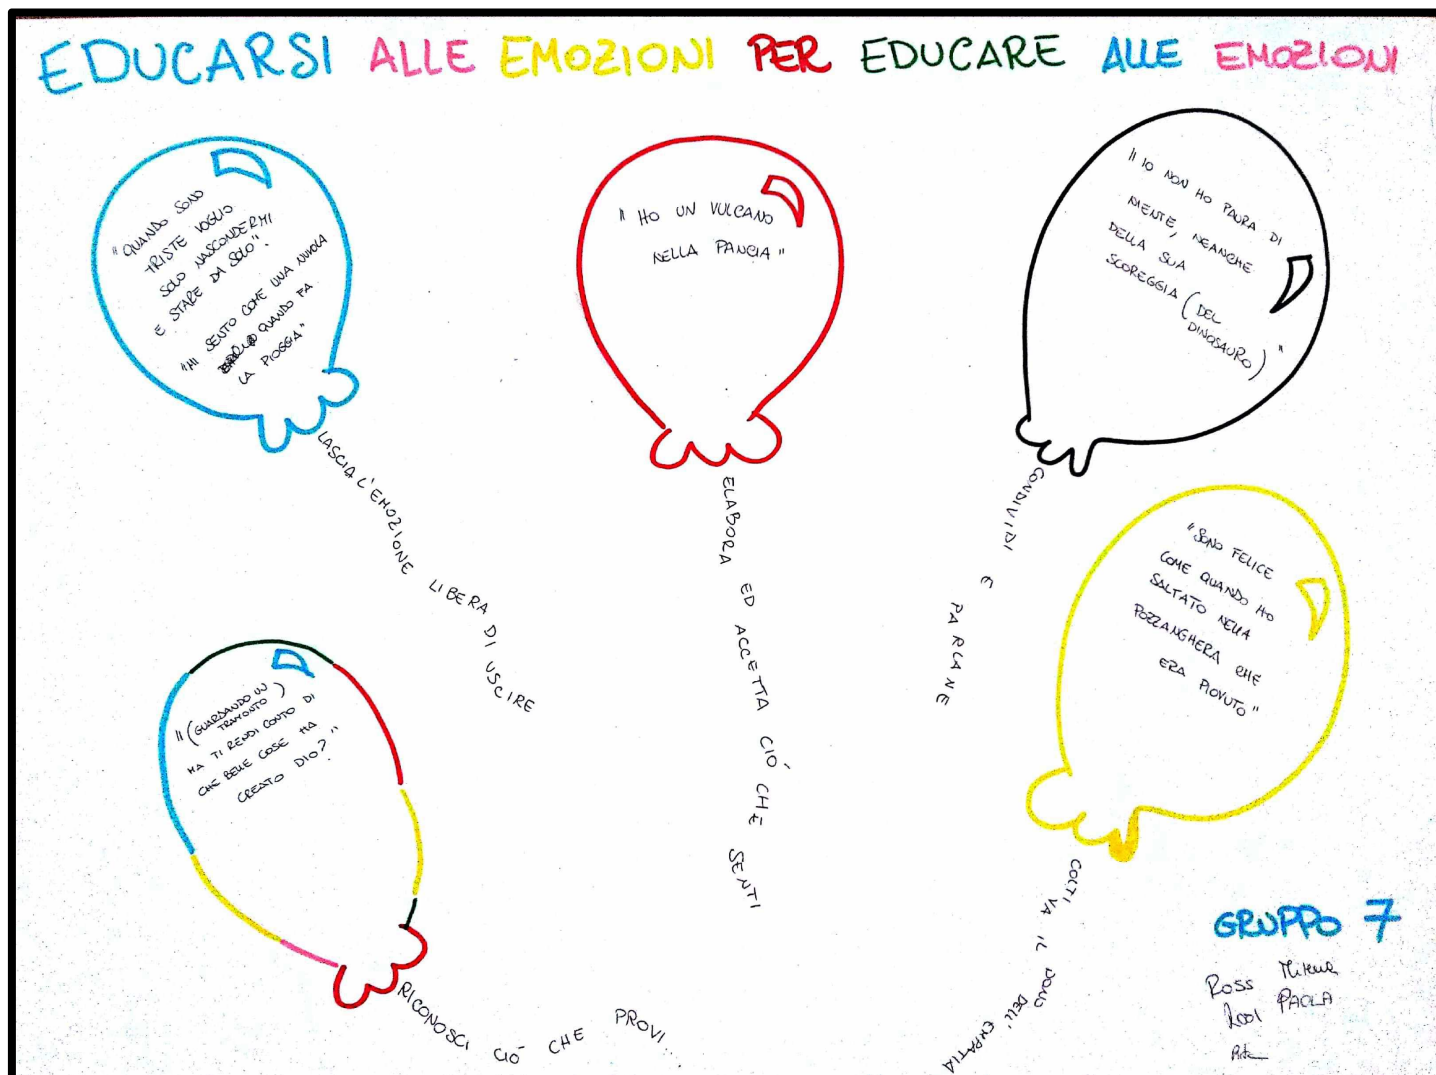 EDUCARSI ALLE EMOZIONI PER EDUCARE ALLE EMOZIONI
"QUANDO SONO
TRISTE VOGLIO
SOLO NASCONDERMI
E STARE DA SOLO".
"MI SENTO COME UNA NUVOLA
QUANDO FA
LA PIOGGIA"
LASCIA L'EMOZIONE LIBERA DI USCIRE
"HO UN VULCANO
NELLA PANCIA"
ELABORA ED ACCETTA CIÒ CHE SENTI
"IO NON HO PAURA DI
NIENTE, NEANCHE
DELLA SUA
SCOREGGIA (DEL
DINOSAURO)"
CONDIVIDI E PARLANE
"SONO FELICE
COME QUANDO HO
SALTATO NELLA
POZZANGHERA CHE
ERA PIOVUTO"
COLTIVA IL DONO DELL'EMPATIA
"(GUARDANDO UN
TRAMONTO)
MA TI RENDI CONTO DI
CHE BELLE COSE HA
CREATO DIO?"
RICONOSCI CIÒ CHE PROVI...
GRUPPO 7
Ross Milena
PAOLA